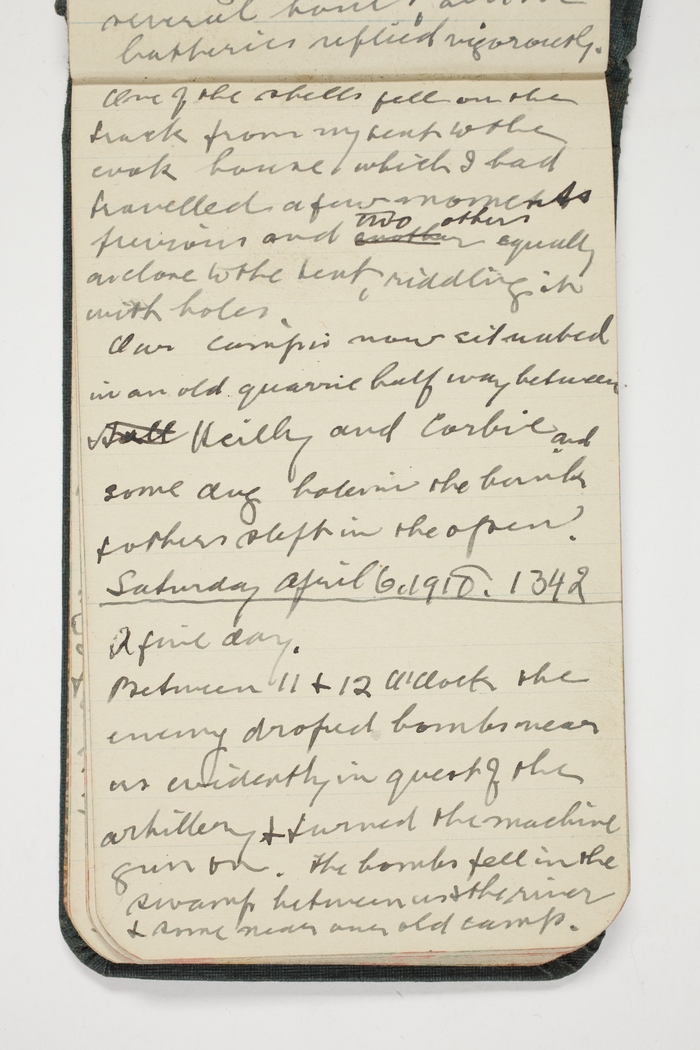 several hours, all our
batteries replied vigorously.
One of the shells fell on the
track from my tent to the
cook house, which I had
travelled a few moments
previous and two others equally
as close to the tent, riddling it
with holes.
Our camp is now situated
in an old quarrie half way between
Heilly and Corbie and
some dug holes in the bank
& others slept in the open.
Saturday April 6. 1918. 1342
A fine day.
Between 11 & 12 O'Clock the
enemy droped bombs near
us evidently in quest of the
artillery & turned the machine
gun on. The bombs fell in the
swamp between us & the river
& some near our old camp.